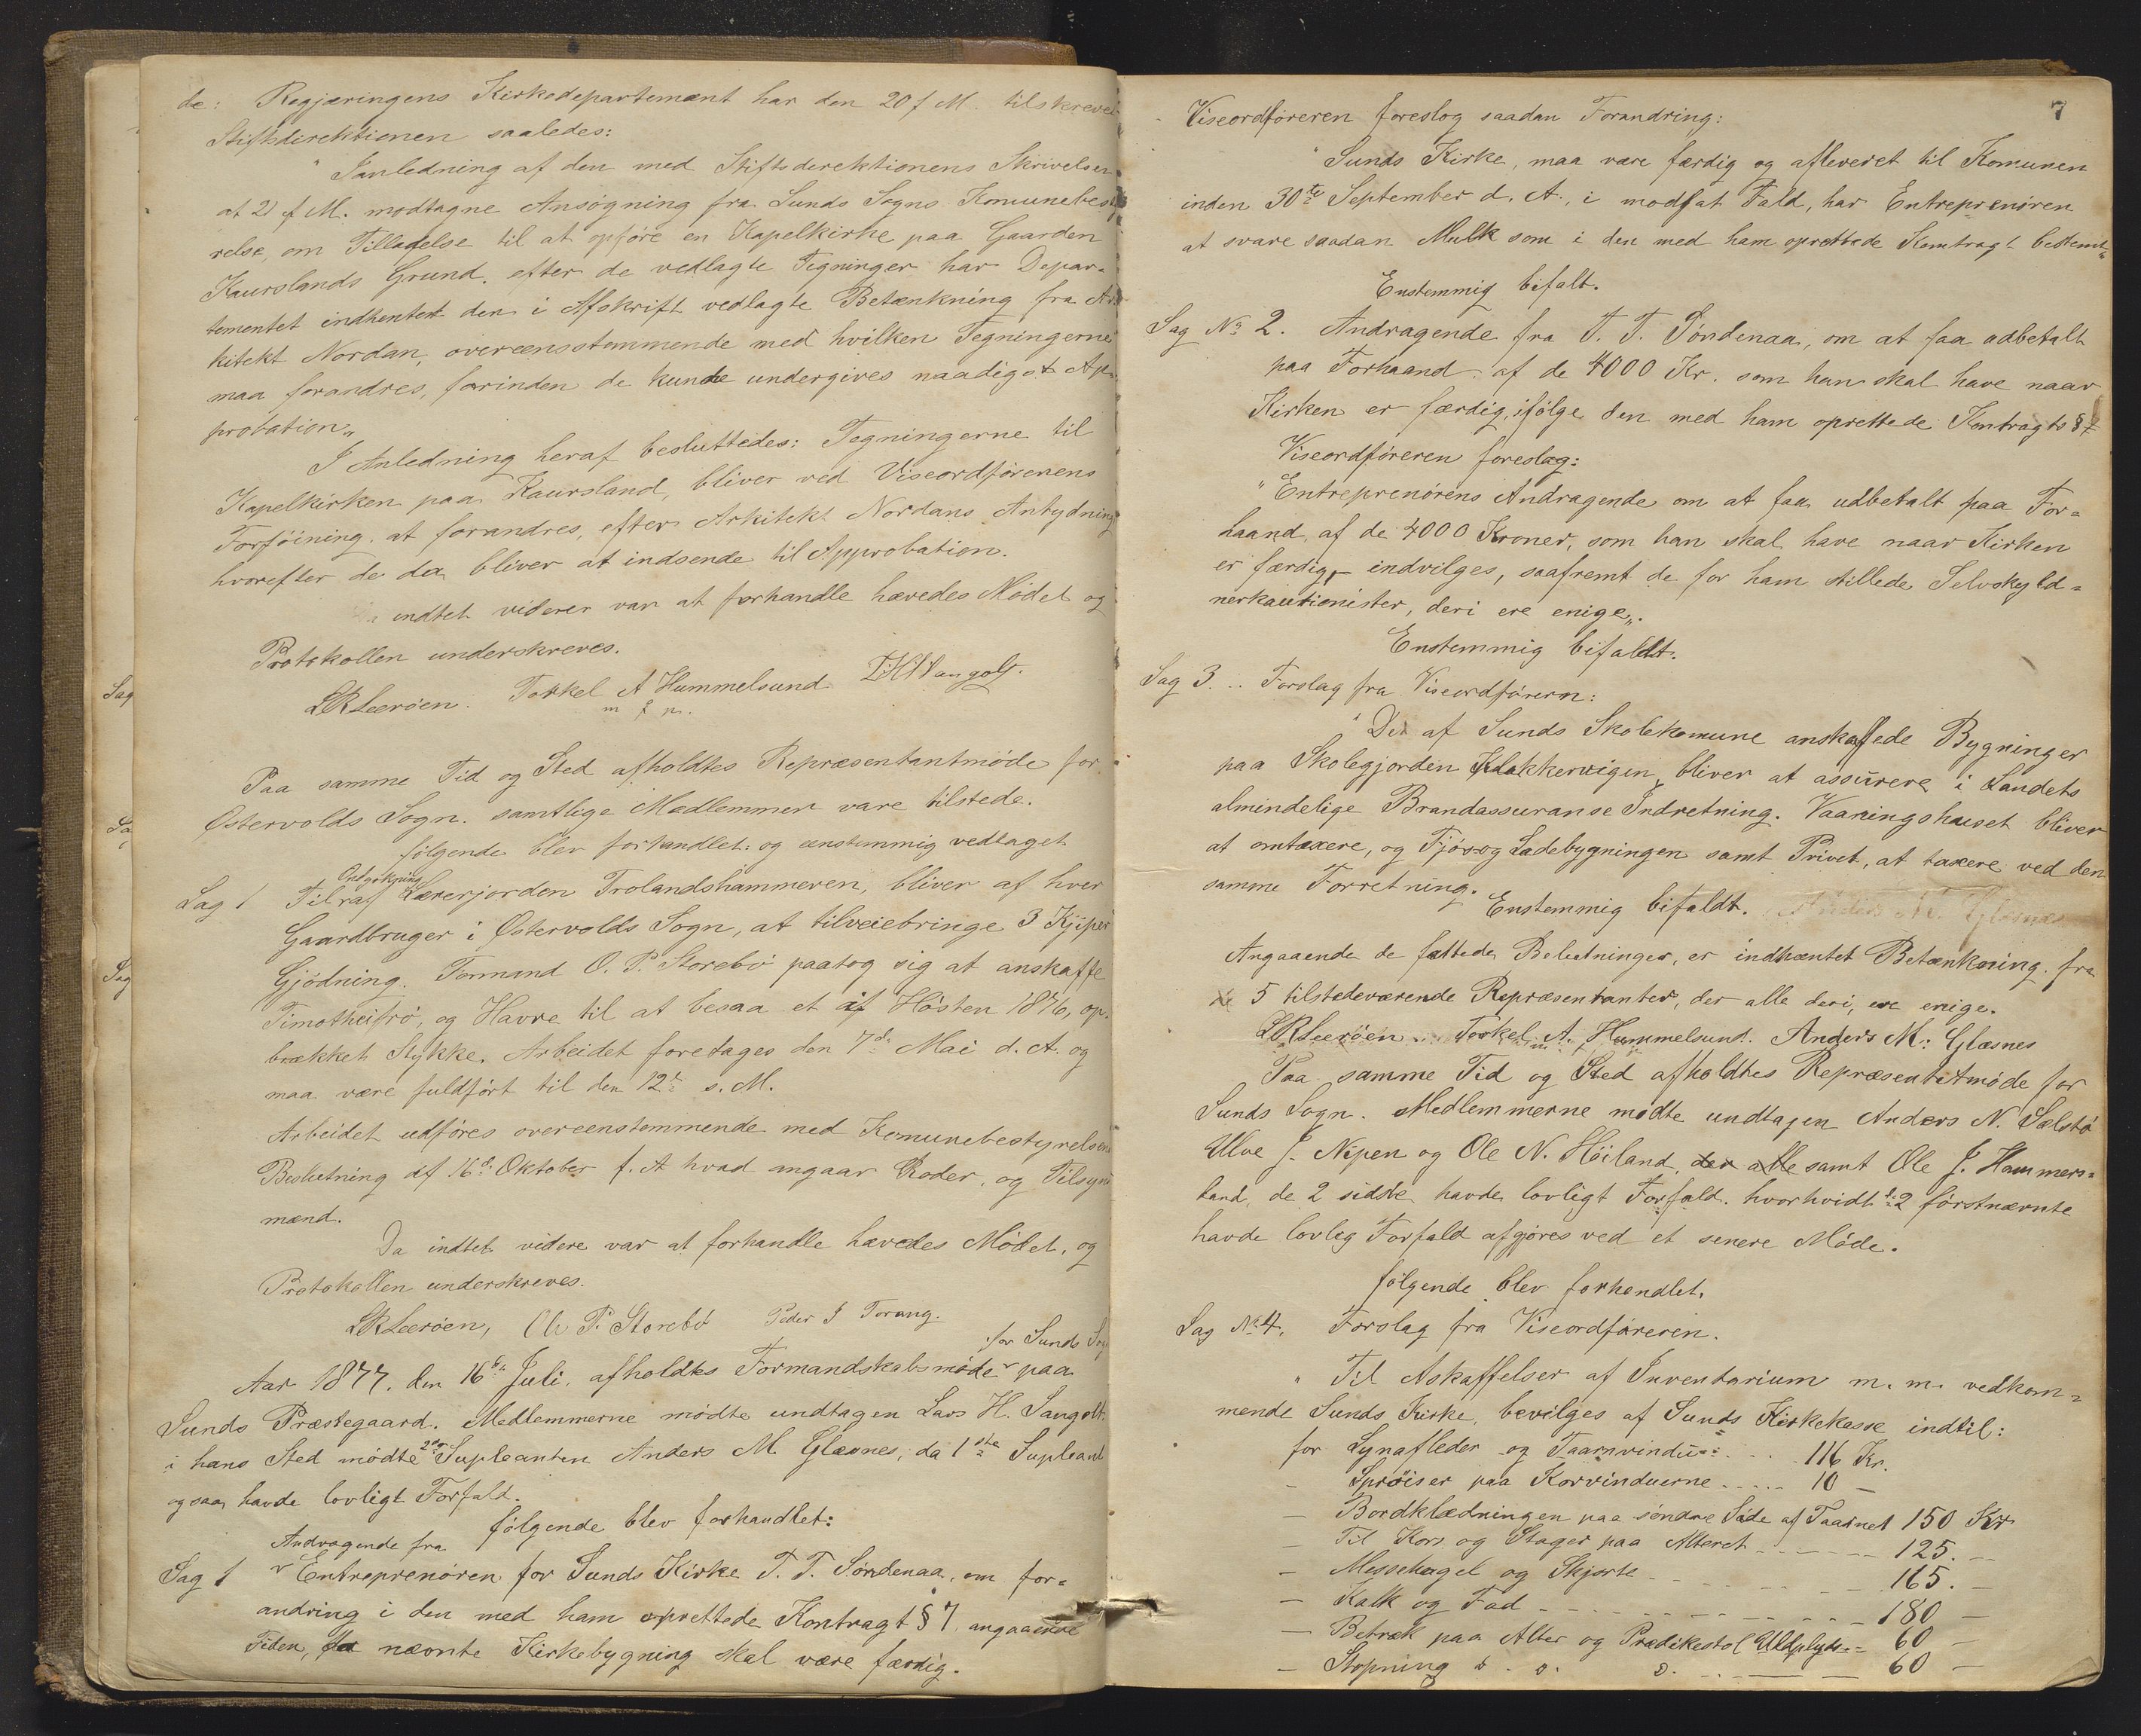 de: Regjæringens Kirkedepartement har den 20 f M. tilskrevet
Stiftsdirektionen saaledes:
" Ianledning af den med Stiftsderektionens Skrivelser
at 2 f M. modtagne Ansøgning fra Sunds Sogns Komunebesty
relse, om Tilladelse til at opføre en Kapelkirke paa Gaarden
Kaurslands Grund, efter de vedlagte Tegninger har Depar-
tementet indhentet den i Afskrift vedlagte Betænkning fra Ar
kitekt Nordan, overeensstemmende med hvilken Tegningerne
maa forandres, forinden de kunde undergives naadigst Ap-
probation„
I Anledning heraf besluttedes: Tegningerne til
Kapelkirken paa Kaursland, bliver ved Viseordførerens
Forføining at forandres, efter Arkitekt Nordans Antydning
hvorefter de da bliver at indsende til Approbation.
Da indtet viderer var at forhandle hævedes Mødet og
Protokollen underskreves.
LRLeerøen. Torkel A Hummelsund LHVangolf.
m f p.
Paa samme Tid og Sted afholdtes Repræsentantmøde for
Østervolds Sogn. samtlige Medlemmer vare tilstede.
følgende blev forhandlet: og enstemmig vedtaget
Sag 1 Til Opdyrkning af Lærerjorden Trolandshammeren, bliver af hver
Gaardbruger i Østervolds Sogn, at tilveiebringe 3 Kjiper
Gjødning. Formand O. P. Storebø paatog sig at anskaffe
Timotheifrø, og Havre til at besaa et af Høsten 1876, op-
brækket Stykke. Arbeidet foretages den 7de Mai d. A. og
maa være fuldført til den 12te s. M.
Arbeidet udføres overeenstemmende med Komunebestyrelsens
Beslutning af 16de Oktober f. A hvad angaar Roder, og Tilsyns
mænd.
Da indtet videre var at forhandle hævedes Mødet, og
Protokollen underskreves.
LRLeerøen, Ole P. Storebø Peder J Torang.
for Sunds Sog
Aar 1877. den 16de Juli, afholdtes Formandskabsmøde paa
Sunds Præstegaard. Medlemmerne mødte undtagen Lars H. Vangolt.
i hans Sted mødte 2den Supleanten Anders M Glæsnes, da 1ste Supleant
ogsaa havde lovligt Forfald.
følgende blev forhandlet:
Andragende fra
Sag 1 Entreprenøren for Sunds Kirke T. T. Søndenaa, om for-
andring i den med ham oprettede Kontragt § 7, angaaende
Tiden, da nævnte Kirkebygning skal være færdig.
7
Viseordføreren foreslog saadan Forandring:
" Sunds Kirke, maa være færdig og afleveret til Komunen
inden 30te September d. A., i modsat Fald, har Entreprenøren
at svare saadan Mulk som i den med ham oprettede Kontragt bestemt„
Enstemmig bifalt.
Sag No 2. Andragende fra T. T. Søndenaa, om at faa udbetalt
paa Forhaand af de 4000 Kr. som han skal have naar
Kirken er færdig, ifølge den med ham oprettede Kontragts § 7
Viseordføreren foreslog:
" Entreprenørens Andragende om at faa udbetalt paa For=
haand, af de 4000 Kroner, som han skal have naar Kirken
er færdig, indvilges, saafremt de for ham stillede Selvskyld=
nerkautionister, deri ere enige„.
Enstemmig bifaldt.
Sag 3... Forslag fra Viseordførern:
" De af Sunds Skolekomune anskaffede Bygninger
paa Skolegjorden Klokkervigen, bliver at assurere i Landets
almindelige Brandassuranse Indretning. Vaaningshuset bliver
at omtaxere, og Fjøs og Ladebygningen samt Privet, at taxere ved den
samme Forretning.
Enstemmig bifaldt.
Angaaende de fattede Beslutninger, er indhentet Betænkning fra
de 5 tilstedeværende Repræsentanter, der alle deri, ere enige.
LRLeerøen. Torkel A. Hummelsund. Anders M: Glæsnes
Paa samme Tid og Sted afholdtes Repræsentatmøde for
Sunds Sogn. Medlemmerne mødte undtagen Anders N. Sælstø
Ulve J. Nipen og Ole N. Høiland, der alle samt Ole J. Hammers=
land, de 2 sidste havde lovligt Forfald. hvorhvidt de 2 førstnævnte
havde lovleg Forfald afgjøres ved et senere Møde.
følgende blev forhandlet.
Sag No 4. Forslag fra Viseordføreren.
" Til Askaffelser af Inventarium m. m. vedkom=
mende Sunds Kirke, bevilges af Sunds Kirkekasse indtil:
for Lynafleder og Taarnvindu ... 116 Kr.
- Sprøiser paa Korvinduerne ..... 10 —
- Bordklædningen paa søndre Side af Taarnet 150 Kr
- Til Kors og Stager paa Alteret ---- 125. —
- Messehagel og Skjorte ---- 165. —
- Kalk og Fad ---- 180 —
- Betræk paa Alter og Prædikestol Uldplyds -- 60 —
- Stopning d. o. d. ---- 60 —
Sag
Sa
Sag